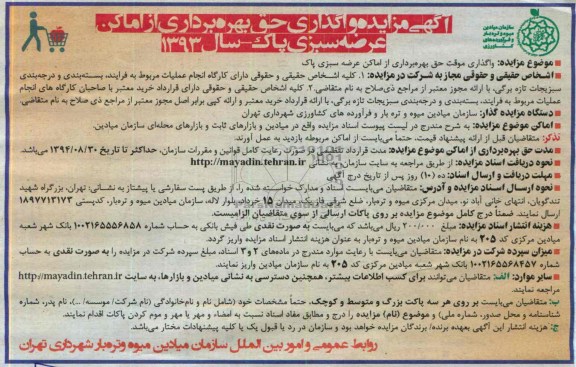 آگهی مزایده واگذاری حق بهره‌برداری از اماکن
عرضه سبزی پاک - سال ۱۳۹۳
سازمان میادین
میوه و تره‌بار
و فرآورده‌های
کشاورزی
موضوع مزایده: واگذاری موقت حق بهره‌برداری از اماکن عرضه سبزی پاک
اشخاص حقیقی و حقوقی مجاز به شرکت در مزایده: ۱. کلیه اشخاص حقیقی و حقوقی دارای کارگاه انجام عملیات مربوط به فرآیند، بسته‌بندی و درجه‌بندی
سبزیجات تازه برگی، با ارائه مجوز معتبر از مراجع ذی‌صلاح به نام متقاضی ۲. کلیه اشخاص حقیقی و حقوقی دارای قرارداد خرید معتبر با صاحبان کارگاه های انجام
عملیات مربوط به فرآیند، بسته‌بندی و درجه‌بندی سبزیجات تازه برگی، با ارائه قرارداد خرید معتبر و ارائه کپی برابر اصل مجوز معتبر از مراجع ذی صلاح به نام متقاضی.
دستگاه مزایده گذار: سازمان میادین میوه و تره بار و فرآورده های کشاورزی شهرداری تهران
اماکن موضوع مزایده: به شرح مندرج در لیست پیوست اسناد مزایده واقع در میادین و بازارهای ثابت و بازارهای محله‌ای سازمان میادین.
تذکر: متقاضیان قبل از ارائه پیشنهاد قیمت، حتماً می‌بایست از اماکن مربوطه بازدید به عمل آورند.
مدت حق بهره‌برداری از اماکن موضوع مزایده: مدت قرارداد تنظیمی در صورت رعایت کامل قوانین و مقررات سازمان، حداکثر تا تاریخ ۱۳۹۴/۰۸/۳۰ می‌باشد.
نحوه دریافت اسناد مزایده: از طریق مراجعه به سایت سازمان به نشانی http://mayadin.tehran.ir
مهلت دریافت و ارسال اسناد: ده (۱۰) روز پس از تاریخ درج آگهی
نحوه ارسال اسناد مزایده و آدرس: متقاضیان می‌بایست اسناد و مدارک خواسته شده را، از طریق پست سفارشی یا پیشتاز به نشانی: تهران، بزرگراه شهید
تندگویان، انتهای خانی آباد نو، میدان مرکزی میوه و تره‌بار، ضلع شرقی فازیک، میدان ۱۵ خرداد، بلوار لاله، سازمان میادین میوه و تره‌بار، کدپستی ۱۸۹۷۷۱۳۱۷۳
ارسال نمایند. ضمناً درج کامل موضوع مزایده بر روی پاکات ارسالی از سوی متقاضیان الزامیست.
هزینه انتشار اسناد مزایده: مبلغ ۲۰۰/۰۰۰ ریال می‌باشد که می‌بایست به صورت نقدی طی فیش بانکی به حساب شماره ۱۰۰۲۱۶۵۵۵۶۸۵۸ بانک شهر شعبه
میادین مرکزی کد ۲۰۵ به نام سازمان میادین میوه و تره‌بار به عنوان هزینه انتشار اسناد مزایده واریز گردد.
میزان سپرده شرکت در مزایده: متقاضیان می‌بایست با رعایت موارد مندرج در ماده‌های ۲ و ۳ اسناد، مبلغ سپرده شرکت در مزایده را به صورت نقدی به حساب
شماره ۱۰۰۲۱۶۵۵۶۸۴۵۷ بانک شهر شعبه میادین مرکزی کد ۲۰۵ به نام سازمان میادین واریز نمایند.
سایر موارد: الف: متقاضیان می‌توانند برای کسب اطلاعات بیشتر، همچنین دسترسی به نشانی میادین و بازارها، به سایت http://mayadin.tehran.ir
مراجعه نمایند.
ب: متقاضیان می‌بایست بر روی هر سه پاکت بزرگ و متوسط و کوچک، حتماً مشخصات خود (شامل نام و نام‌خانوادگی (نام شرکت/ موسسه/ ...)، نام پدر، شماره
شناسنامه و محل صدور، شماره ملی) و موضوع (نام) مزایده را درج و مطابق مفاد اسناد نسبت به امضاء و مهر یا مهر و موم کردن پاکات اقدام نمایند.
ج: هزینه انتشار این آگهی بعهده برنده/ برندگان مزایده خواهد بود و سازمان در رد یا قبول یک یا کلیه پیشنهادات مختار می‌باشد.
روابط عمومی و امور بین الملل سازمان میادین میوه و تره‌بار شهرداری تهران